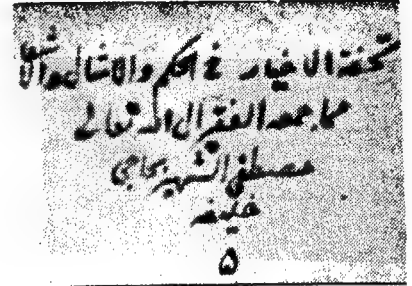 تحفة الاخيار في الحكم والامثال والاشعار
مما جمعه الفقير الى الله تعالى
مصطفى الشهير بحاجي
خليفه
۵